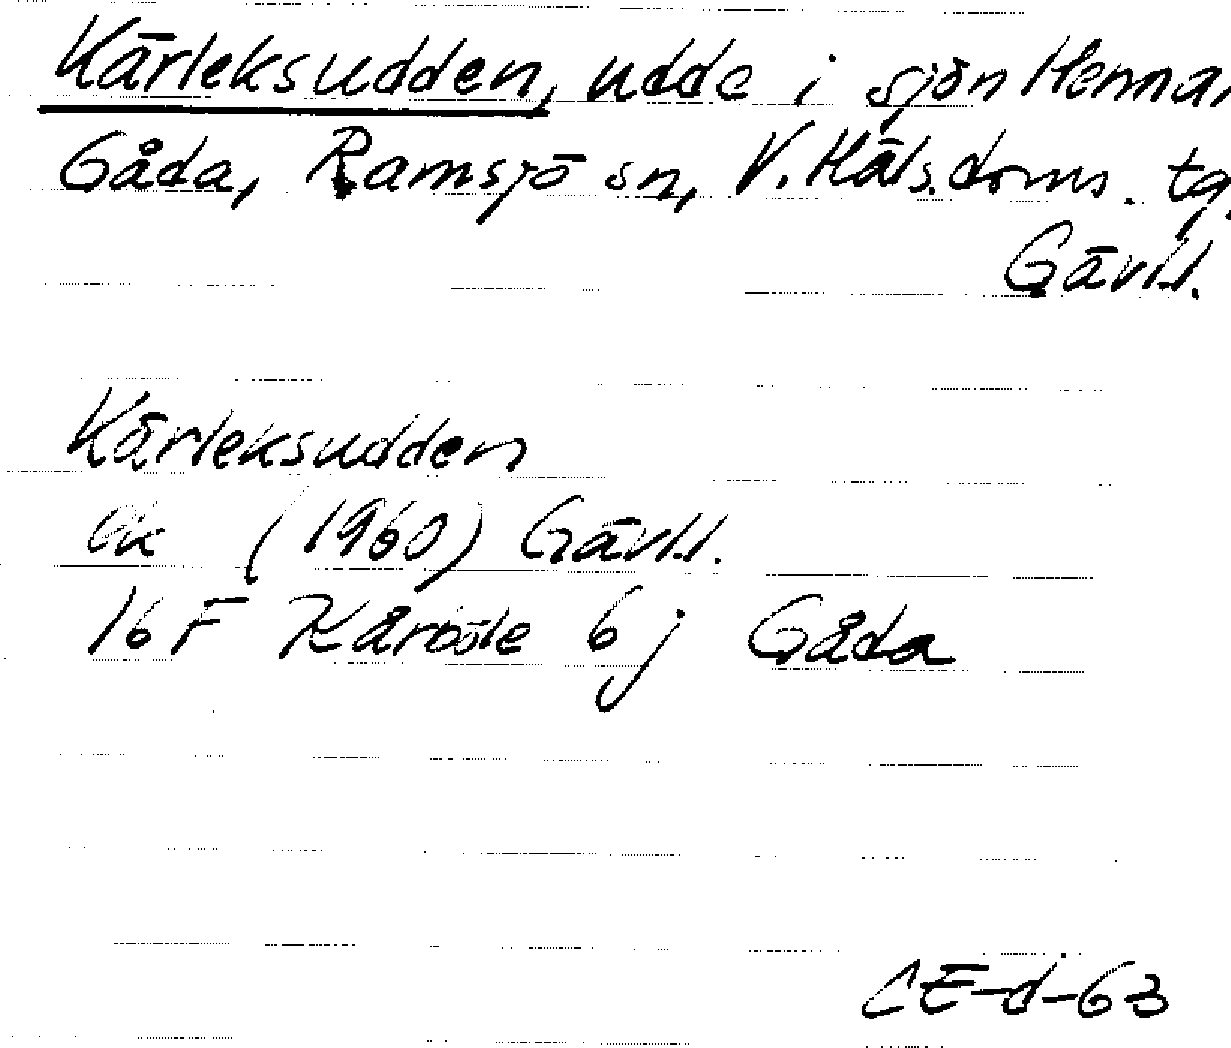 Kärleksudden, udde i sjön Hennan
Gåda, Ramsjö sn, V. Häls. doms. tg,
Gävl.l.
Kärleksudden
ek (1960) Gävl.l.
16 F Kårböle 6 j Gåda
CE-d-63